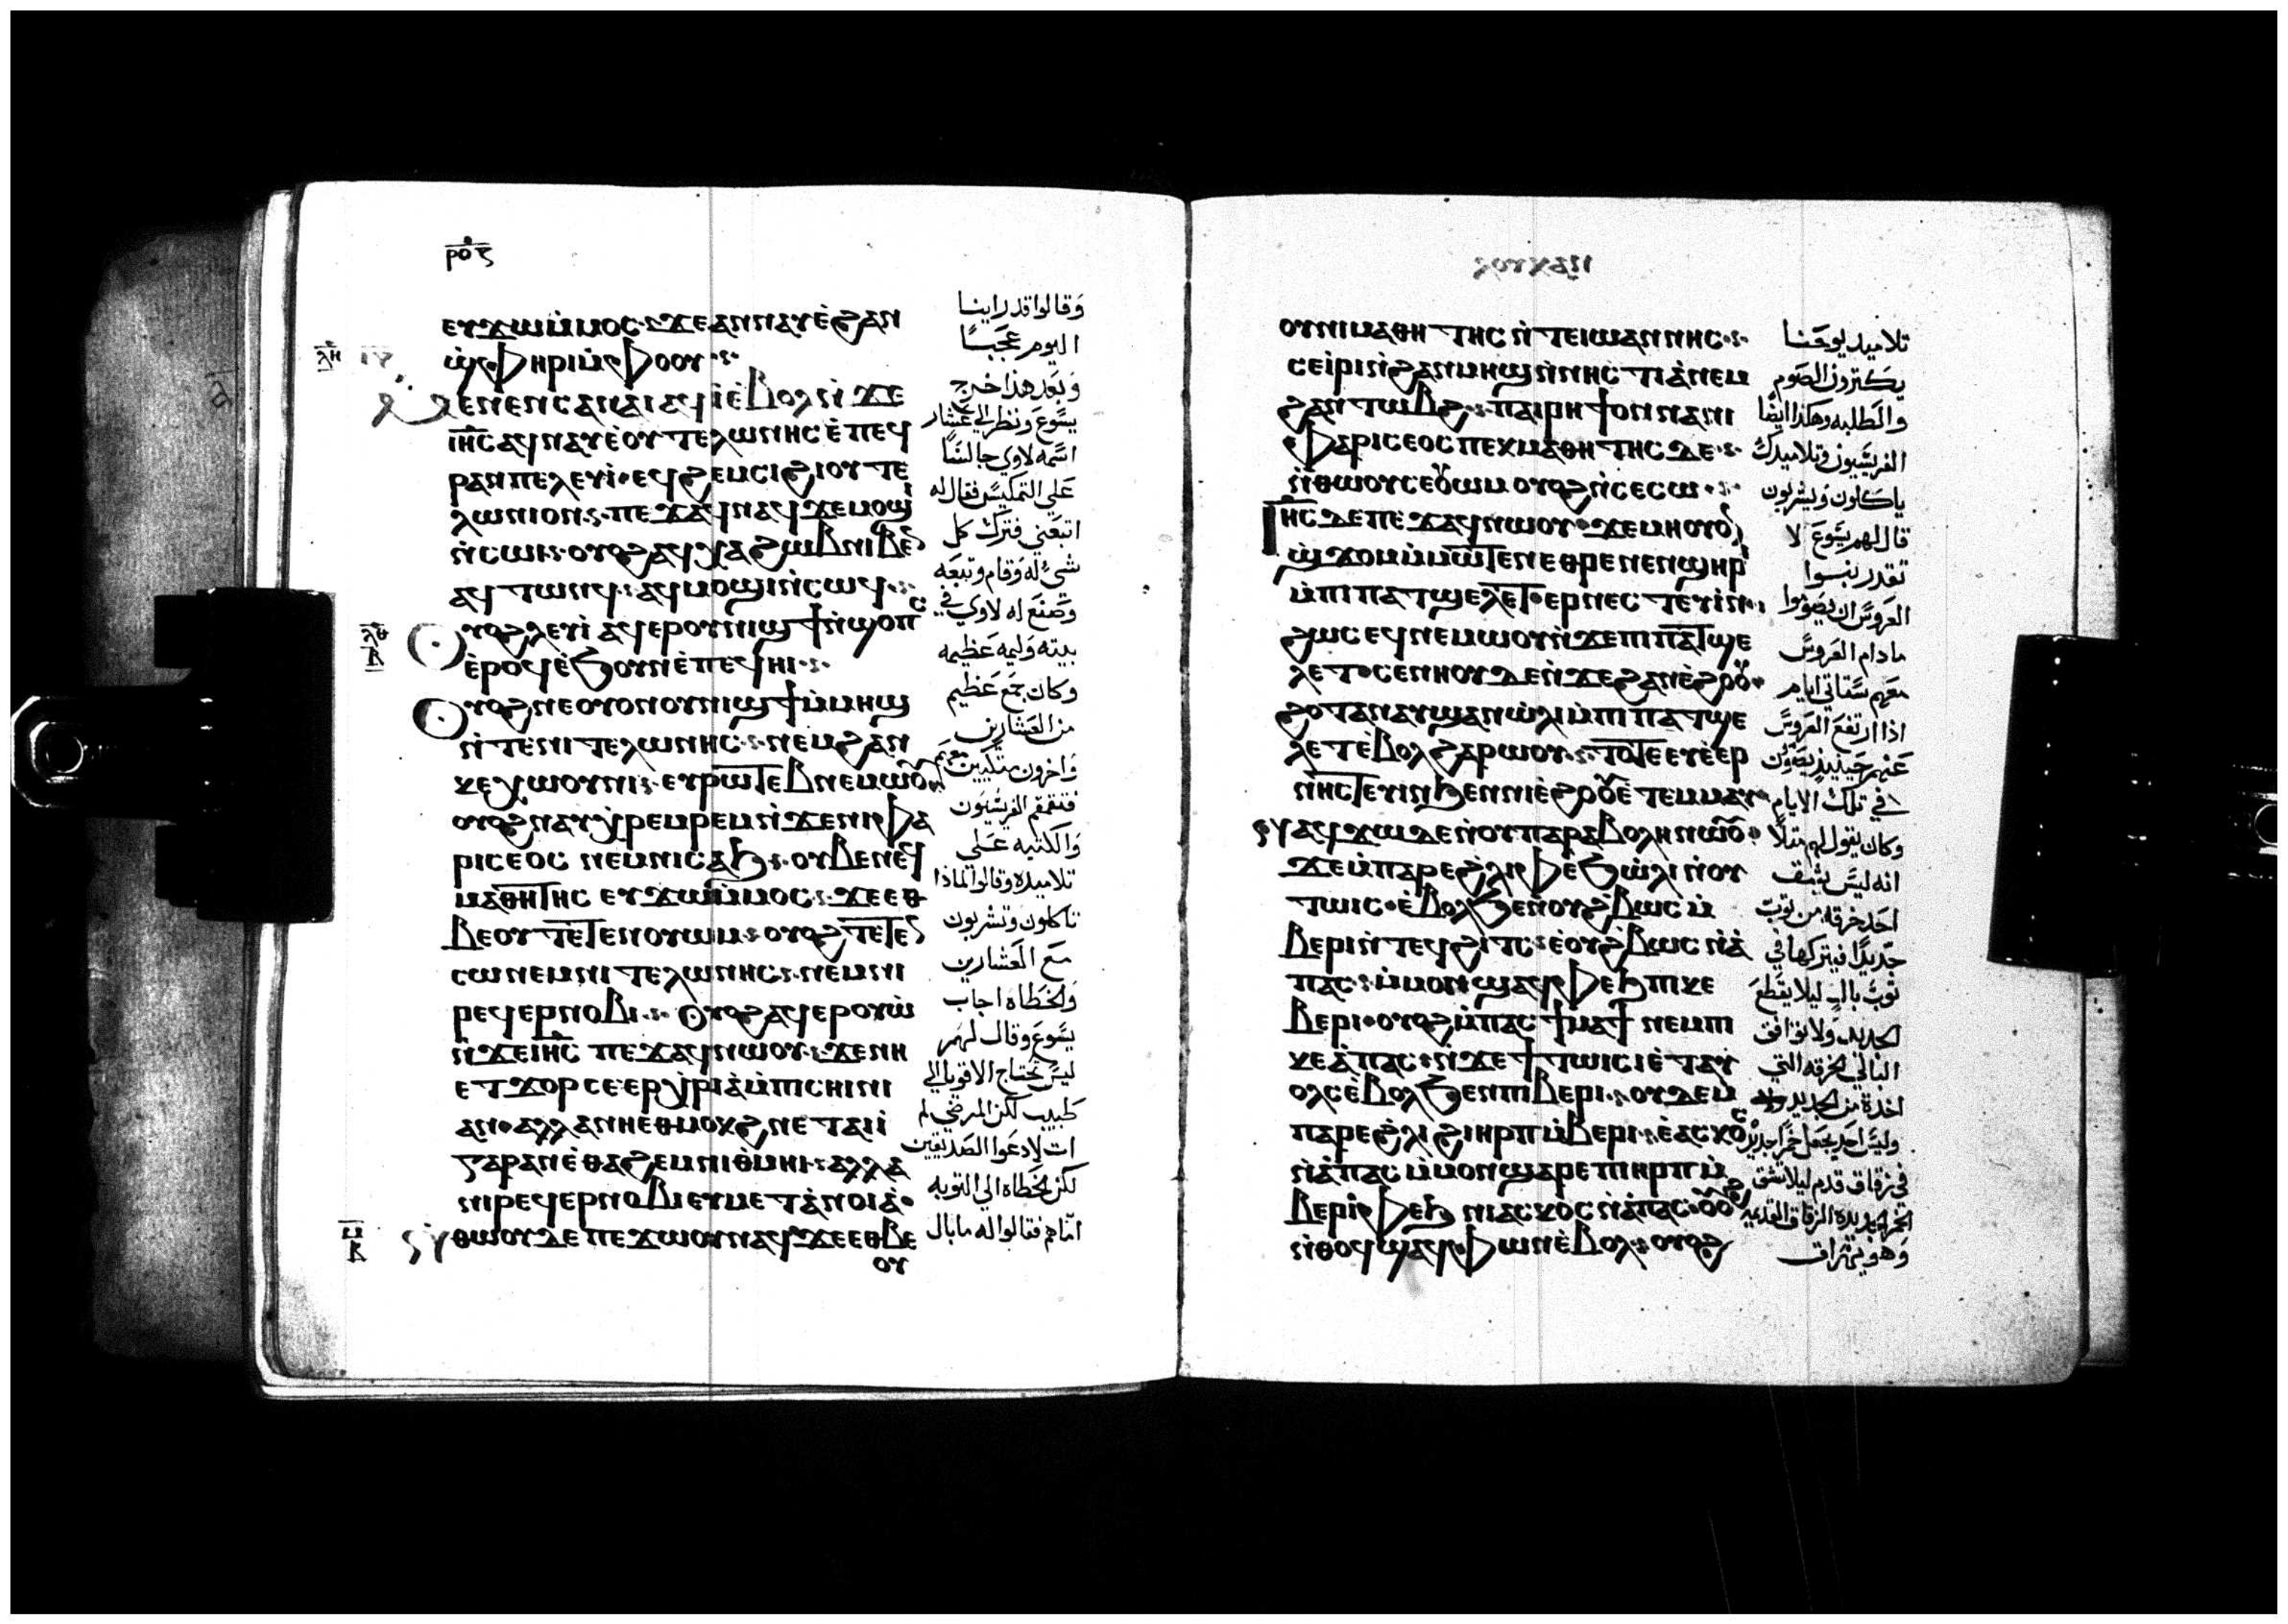 ⲣⲟⳅ
ⲉⲩϫⲱⲙ̇ⲙⲟⲥ ϫⲉⲁⲛⲛⲁⲩⲉ̇ϩⲁⲛ
ϣ̇ⲫⲏⲣⲓⲙ̇ⲫⲟⲟⲩ
ⲗⲏ
ⲙⲉⲛⲉⲛⲥⲁⲛⲁⲓⲁϥⲓ̇ⲉ̇ⲃⲟⲗⲛ̇ϫⲉ
ⲓⲏⲥⲁϥⲛⲁⲩⲉ̇ⲟⲩⲧⲉⲗⲱⲛⲏⲥⲉ̇ⲡⲉϥ
ⲣⲁⲛⲡⲉⲗⲉⲩⲓ̇ ⲉϥϩⲉⲙⲥⲓϩⲓⲟⲩⲧⲉ
ⲗⲱⲛⲓⲟⲛ ⲡⲉϫⲁϥⲛⲁϥϫⲉⲙⲟϣⲓ
ⲛ̇ⲥⲱⲓ ⲟⲩⲟϩⲁϥⲭⲁϩⲱⲃⲛⲓⲃⲉⲛ
ⲁϥⲧⲱⲛϥ ⲁϥⲙⲟϣⲓⲛ̇ⲥⲱϥ
ⲗⲑ
ⲟⲩⲟϩⲗⲉⲩⲓ ⲁϥⲉⲣⲟⲩⲛⲓϣϯⲛ̇ϣⲟⲡⲥ
ⲉ̇ⲣⲟϥⲉ̇ϧⲟⲩⲛⲉ̇ⲡⲉϥⲏⲓ
ⲟⲩⲟϩⲛⲉⲟⲩⲟⲛⲟⲩⲛⲓϣϯⲙ̇ⲙⲏϣ
ⲛ̇ⲧⲉⲛⲓⲧⲉⲗⲱⲛⲏⲥ ⲛⲉⲙϩⲁⲛ
ⲕⲉⲭⲱⲟⲩⲛⲓ ⲉⲩⲣⲱⲧⲉⲃⲛⲉⲙⲱⲟⲩ
ⲟⲩⲟϩⲛⲁⲩⲭⲣⲉⲙⲣⲉⲙⲛ̇ϫⲉⲛⲓⲫⲁ
ⲣⲓⲥⲉⲟⲥ ⲛⲉⲙⲛⲓⲥⲁϧ ⲟⲩⲃⲉⲛⲉϥ
ⲙⲁⲑⲏⲧⲏⲥ ⲉⲩϫⲱⲙ̇ⲙⲟⲥ ϫⲉⲉⲑ
ⲃⲉⲟⲩⲧⲉⲧⲉⲛⲟⲩⲱⲙ ⲟⲩⲟϩⲧⲉⲧⲉⲛ
ⲥⲱⲛⲉⲙⲛⲓⲧⲉⲗⲱⲛⲏⲥ ⲛⲉⲙⲛⲓ
ⲣⲉϥⲉⲣⲛⲟⲃⲓ ⲟⲩⲟϩⲁϥⲉⲣⲟⲩⲱ̇
ⲛ̇ϫⲉⲓⲏⲥ ⲡⲉϫⲁϥⲛⲱⲟⲩ ϫⲉⲛⲏ
ⲉⲧϫⲟⲣ ⲥⲉⲉⲣⲭⲣⲓⲁ̇ⲙ̇ⲡⲓⲥⲏⲓⲛⲓ
ⲁⲛ ⲁⲗⲗⲁⲛⲏⲉⲑⲙⲟⲕϩ ⲛⲉⲧⲁⲓⲓ̇
ⲅⲁⲣⲁⲛⲉ̇ⲑⲁϩⲉⲙⲛⲓⲑⲙⲏⲓ ⲁⲗⲗⲁ
ⲛⲓⲣⲉϥⲉⲣⲛⲟⲃⲓⲉⲩⲙⲉⲧⲁ̇ⲛⲟⲓⲁ̇
ⲙ
ⲛ̇ⲑⲱⲟⲩⲇⲉ ⲡⲉϫⲱⲟⲩⲛⲁϥϫⲉⲉⲑⲃⲉ
ⲟⲩ
وقالوا قد راينا
اليوم عجبًا
وبعد هذا خرج
يسوع ونظر الي عشار
اسمه لاوي جالسًا
علي التمكيس فقال له
اتبعني فترك كل
شيء له وقام وتبعه
وصنع له لاوي في
بيته وليمه عظيمه
وكان جمع عظيم
من العشارين
واخرون متكيين معهم
فتقمقم الفريسيون
والكتبه علي
تلاميده وقالوا لماذا
تاكلون وتشربون
مع العشارين
والخطاه اجاب
يسوع وقال لهم
ليس يحتاج الاقويا الي
طبيب لكن المرضي لم
ات لادعوا الصديقين
لكن الخطاه الي التوبه
امّاهم فقالوا له ما بال
ⲟⲩⲛⲓⲙⲁⲑⲏⲧⲏⲥ ⲛ̇ⲧⲉⲓⲱⲁⲛⲛⲏⲥ
ⲥⲉⲓ̇ⲣⲓⲛ̇ϩⲁⲛⲙⲏϣⲛ̇ⲛⲏⲥⲧⲓⲁ̇ⲛⲉⲙ
ϩⲁⲛⲧⲱⲃϩ ⲡⲁⲓⲣⲏϯⲟⲛⲛⲁⲛⲓ
ⲫⲁⲣⲓⲥⲉⲟⲥ ⲡⲉⲕⲙⲁⲑⲏⲧⲏⲥⲇⲉ
ⲛ̇ⲑⲱⲟⲩⲥⲉⲟⲩⲱⲙ ⲟⲩⲟϩⲛ̇ⲥⲉⲥⲱ
ⲓⲏⲥⲇⲉⲡⲉϫⲁϥⲛⲱⲟⲩ ϫⲉⲙⲏⲟⲩⲟⲛ
ϣ̇ϫⲟⲙⲙ̇ⲙⲱⲧⲉⲛⲉⲑⲣⲉⲛⲉⲛϣⲏⲣⲓ
ⲙ̇ⲡⲓⲡⲁⲧϣⲉⲗⲉⲧ ⲉⲣⲛⲏⲥⲧⲉⲩⲓⲛ
ϩⲱⲥⲉϥⲛⲉⲙⲱⲟⲩⲛ̇ϫⲉⲡⲓⲡⲁⲧϣⲉ
ⲗⲉⲧ ⲥⲉⲛⲏⲟⲩⲇⲉⲛ̇ϫⲉϩⲁⲛⲉ̇ϩⲟⲟⲩ
ϩⲟⲧⲁⲛⲁⲩϣⲁⲛⲱ̇ⲗⲓⲙ̇ⲡⲓⲡⲁⲧϣⲉ
ⲗⲉⲧⲉ̇ⲃⲟⲗϩⲁⲣⲱⲟⲩ ⲧⲟⲧⲉⲉⲩⲉ̇ⲉⲣ
ⲛⲏⲥⲧⲉⲩⲓⲛϧⲉⲛⲛⲓⲉ̇ϩⲟⲟⲩⲉ̇ⲧⲉⲙⲙⲁⲩ
ⲛⲁϥϫⲱⲇⲉⲛ̇ⲟⲩⲡⲁⲣⲁⲃⲟⲗⲏⲛⲱⲟⲩ
ϫⲉⲙ̇ⲡⲁⲣⲉϩ̇ⲗⲓⲫⲉ̇ϧⲱ̇ⲗⲓⲛ̇ⲟⲩ
ⲧⲱⲓⲥ ⲉ̇ⲃⲟⲗϧⲉⲛⲟⲩϩ̇ⲃⲱⲥⲙ̇
ⲃⲉⲣⲓⲛ̇ⲧⲉϥϩⲓⲧⲥ ⲉ̇ⲟⲩϩ̇ⲃⲱⲥⲛ̇ⲁ̇
ⲡⲁⲥ ⲙ̇ⲙⲟⲛϣⲁϥⲫⲉϧⲡⲓⲕⲉ
ⲃⲉⲣⲓ ⲟⲩⲟϩⲙ̇ⲡⲁⲥϯⲙⲁϯⲛⲉⲙⲡⲓ
ⲕⲉⲁ̇ⲡⲁⲥ ⲛ̇ϫⲉϯⲧⲱⲓⲥⲓⲉ̇ⲧⲁⲩ
ⲟⲗⲥⲉ̇ⲃⲟⲗϧⲉⲛⲡⲓⲃⲉⲣⲓ ⲟⲩⲇⲉⲙ̇
ⲡⲁⲣⲉϩ̇ⲗⲓϩⲓⲏⲣⲡⲙ̇ⲃⲉⲣⲓ ⲉ̇ⲁⲥⲕⲟⲥ
ⲛ̇ⲁ̇ⲡⲁⲥ ⲙ̇ⲙⲟⲛϣⲁⲣⲉⲡⲓⲏⲣⲡⲙ̇
ⲃⲉⲣⲓⲫⲉϧ ⲛⲓⲁⲥⲕⲟⲥⲛ̇ⲁ̇ⲡⲁⲥ ⲟⲩⲟϩ
ⲛ̇ⲑⲟϥϣⲁϥⲫⲱⲛⲉ̇ⲃⲟⲗ ⲟⲩⲟϩ
تلاميد يوحنا
يكترون الصوم
والطلبه وهكذا ايضًا
الفريسيون وتلاميدك
ياكلون ويشربون
قال لهم يسوع لا
تقدر بنوا
العروس ان يصوموا
مادام العروس
معهم ستاتي ايام
اذا ارتفع العروس
عنهم حينيذ يصومون
في تلك الايام
وكان يقول لهم مثلًا
انه ليس يشق
احد خرقه من توب
جديدًا فيتركها في
توب بالٍ ليلا يقطع
الجديد ولا توافق
البالي الخرقه التي
اخذة من الجديد
وليس احد يجعل خمرًا جديدًا
في زقاق قدم ليلا تشق
الخمر الجديده الزقاق القديمه
وهو يهراق